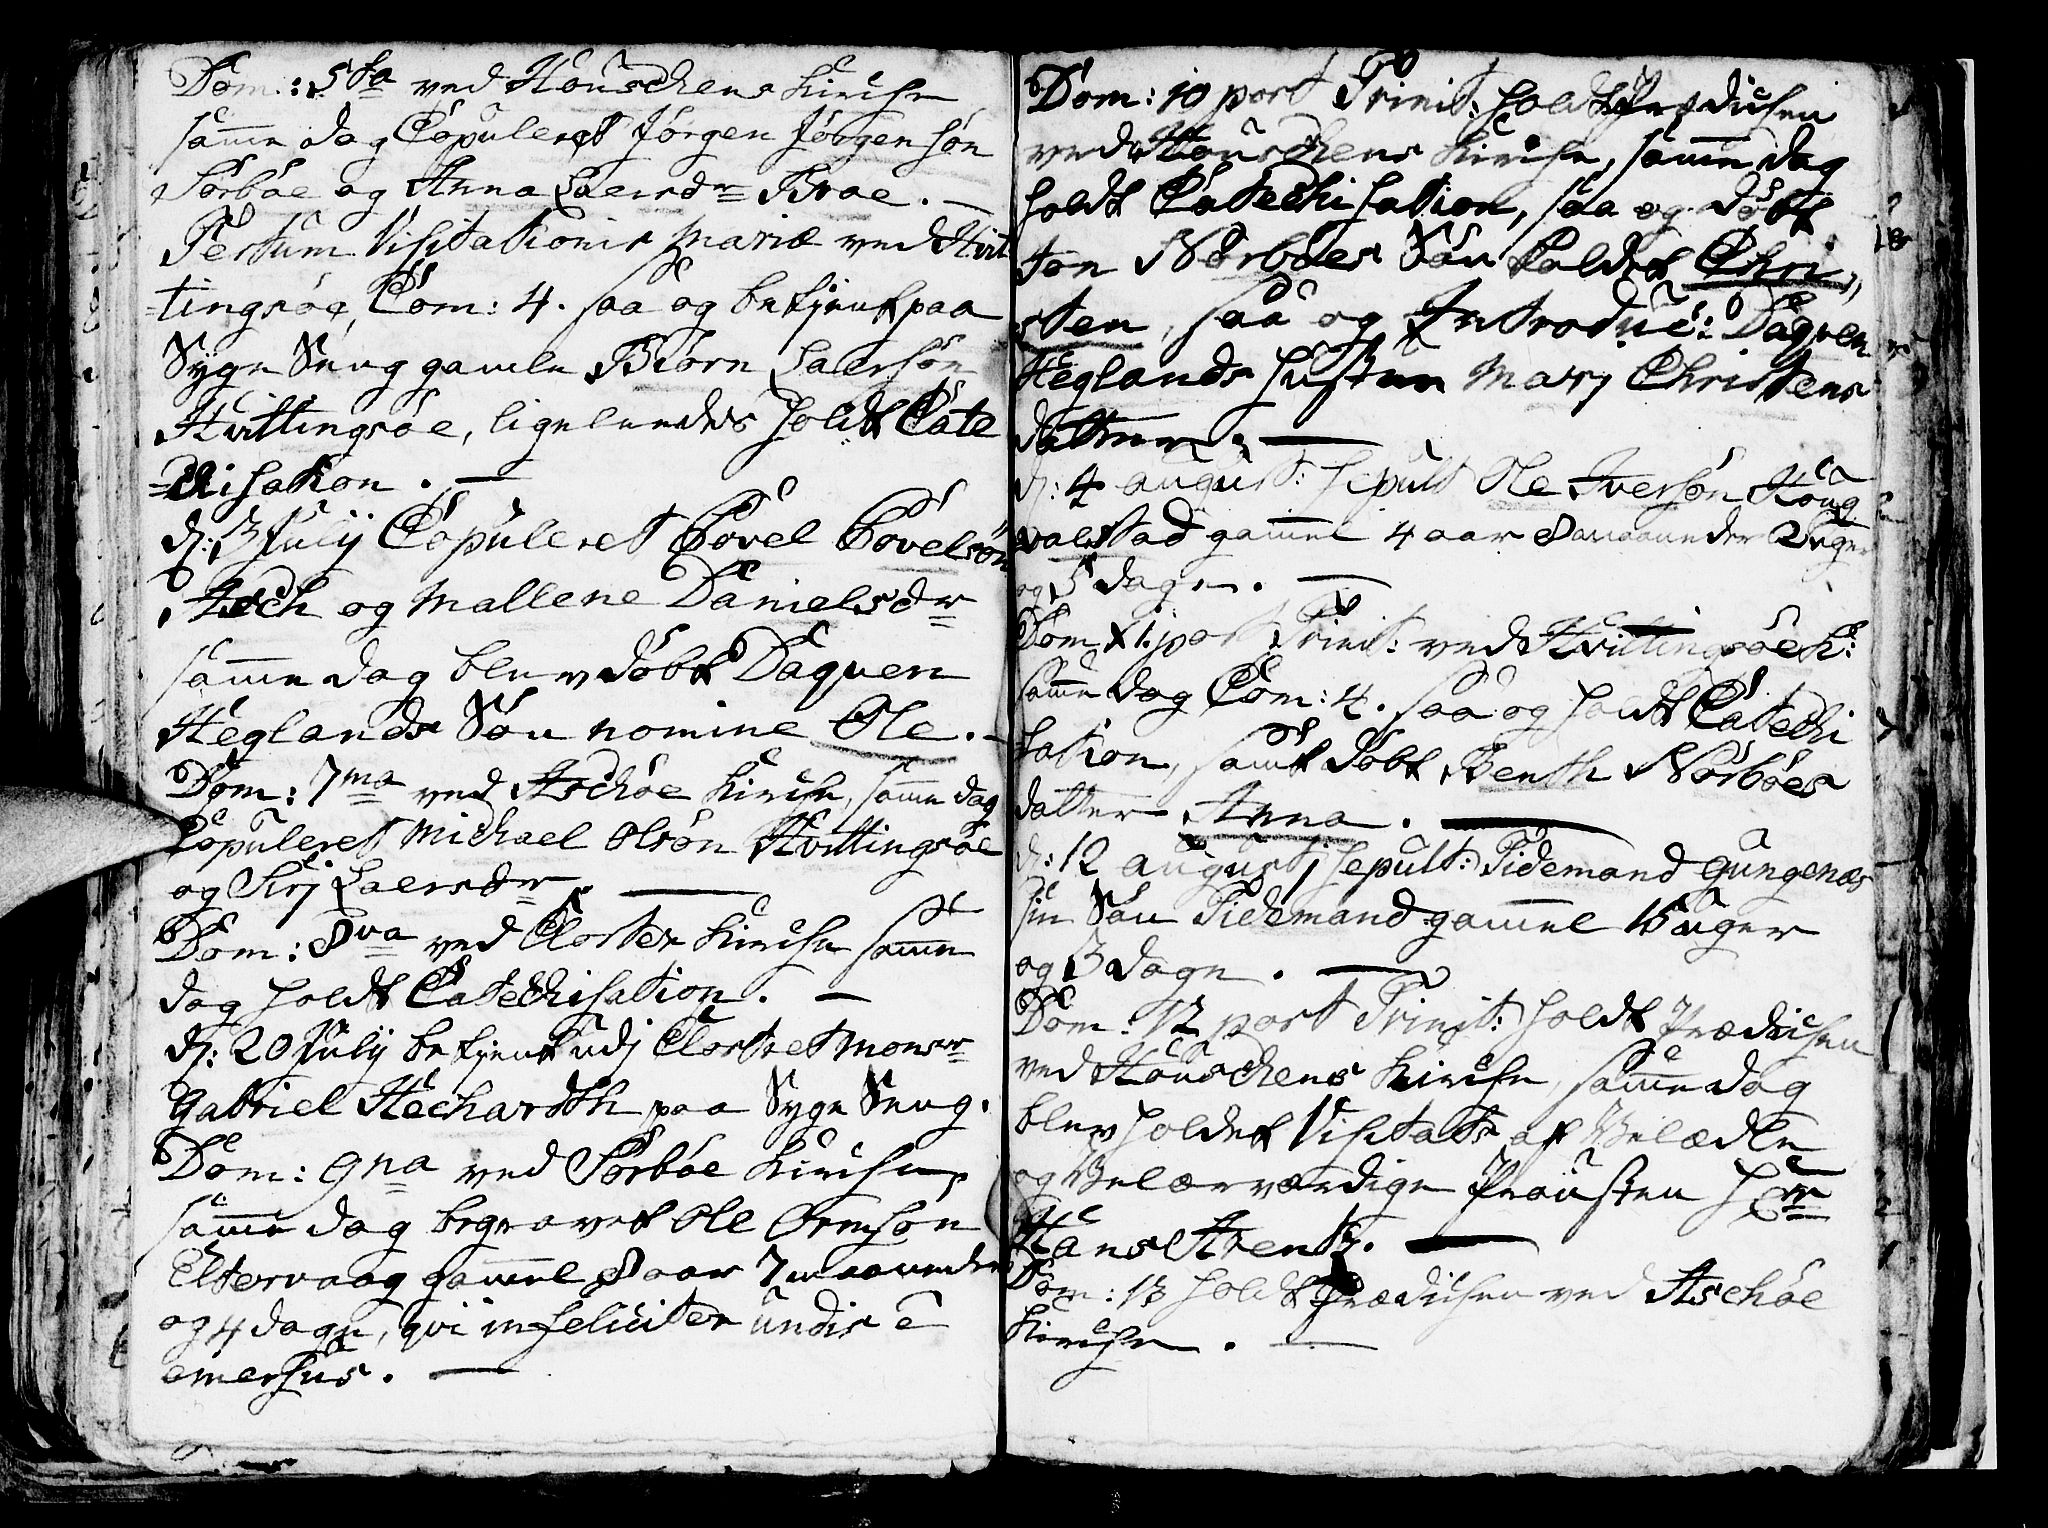 Dom: 5ta ved Houschens Kirche
samme dag Copuleret Jörgen Jörgensön
Sörböe og Anna Laersdr Broe. —
Festum Visitationis Mariæ ved Hvit
=tingsöe, Com: 4. saa og betjent paa
Syge Seng gamle Biörn Laersön
Hvittingsöe, ligeleedes holdt Cate
=chisation. —
d: 3 Julij Copuleret Povel Povelsön
Asch og Mallene Danielsdr
samme dag blev döbt Dagven
Heglands Sön nomine Ole. —
Dom: 7ma ved Aschöe Kirche, samme dag
Copuleret Michael Olsön Hvittingsöe
og Sirj Laersdr. —
Dom: 8va ved Closter Kirche samme
dag holdt Catechisation. —
d: 20 Julij betjent udj Closteret Monsr
Gabriel Hechardth paa Syge Seng.
Dom: 9na ved Sörböe Kirche,
samme dag begravet Ole Ormsön
Eltervaag gammel 8 aar 7 maaneder
og 4 dage, qvi infeliciter undis e
emersus. —
Dom: 10 post Trinit: holdt Prædichen
ved Houschens Kirche, samme dag
holdt Catechisation, saa og döbt
Nörböes Sön kaldet Chri,,
sten, saa og Introduc: Dagven
Heglands hustrue Marj Christens
datter. —
d: 4 august: sepult Ole Iversön Houg
valstad gammel 4 aar 8 maaneder 2 uger
og 5 dage. —
Dom XI. post Trinit: ved Hvittingsöe K:
samme dag Com: 4. saa og holdt Catechi
sation, samt döbt Benth Nörböes
datter Anna. —
d: 12 augustj sepult: Tidemand Gungenæs
sin Sön Tidemand gammel 15 uger
og 3 dage. —
Dom: 12 post Trinit: holdt Prædichen
ved Houschens Kirche, samme dag
blev holdet Visitats af Velædle
og Velærværdige Prousten Hr
Hans Arentz. —
Dom: 13 holdt Prædichen ved Aschöe
Kirche. —